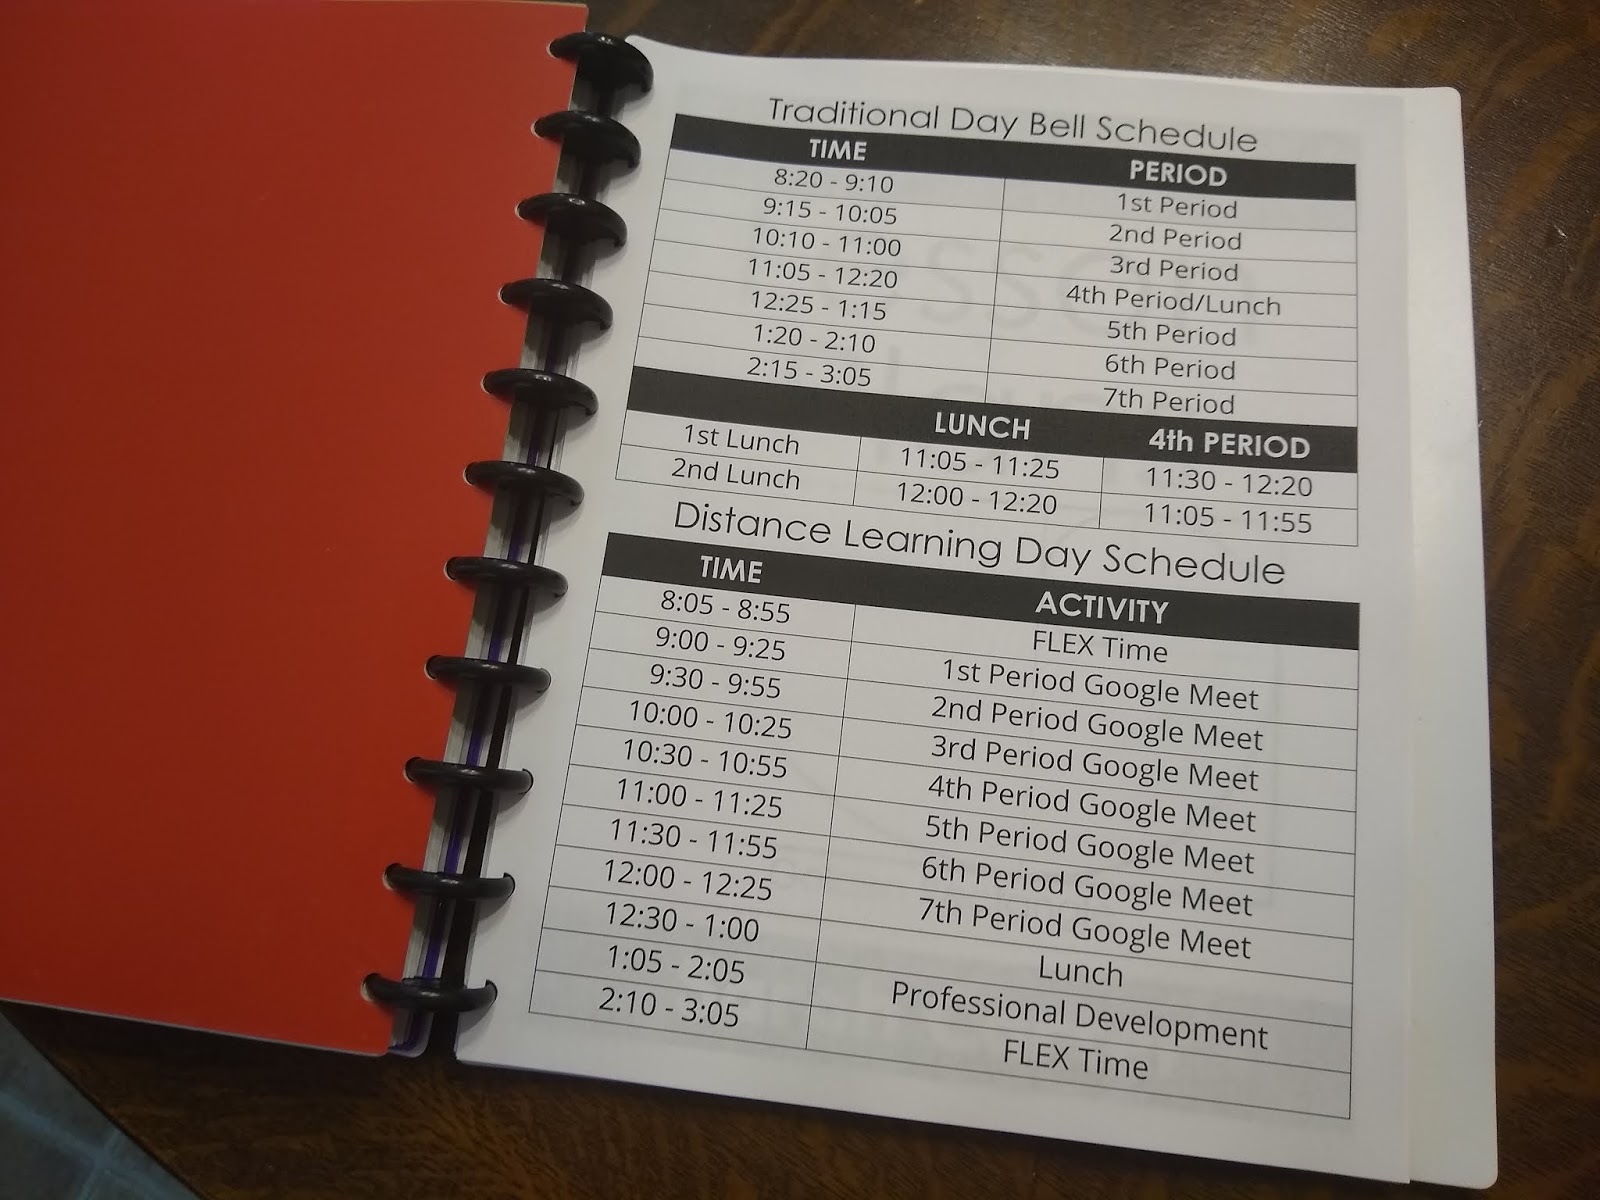 Traditional Day Bell Schedule
TIME PERIOD
8:20 - 9:10 1st Period
9:15 - 10:05 2nd Period
10:10 - 11:00 3rd Period
11:05 - 12:20 4th Period/Lunch
12:25 - 1:15 5th Period
1:20 - 2:10 6th Period
2:15 - 3:05 7th Period
LUNCH 4th PERIOD
1st Lunch 11:05 - 11:25 11:30 - 12:20
2nd Lunch 12:00 - 12:20 11:05 - 11:55
Distance Learning Day Schedule
TIME ACTIVITY
8:05 - 8:55 FLEX Time
9:00 - 9:25 1st Period Google Meet
9:30 - 9:55 2nd Period Google Meet
10:00 - 10:25 3rd Period Google Meet
10:30 - 10:55 4th Period Google Meet
11:00 - 11:25 5th Period Google Meet
11:30 - 11:55 6th Period Google Meet
12:00 - 12:25 7th Period Google Meet
12:30 - 1:00 Lunch
1:05 - 2:05 Professional Development
2:10 - 3:05 FLEX Time